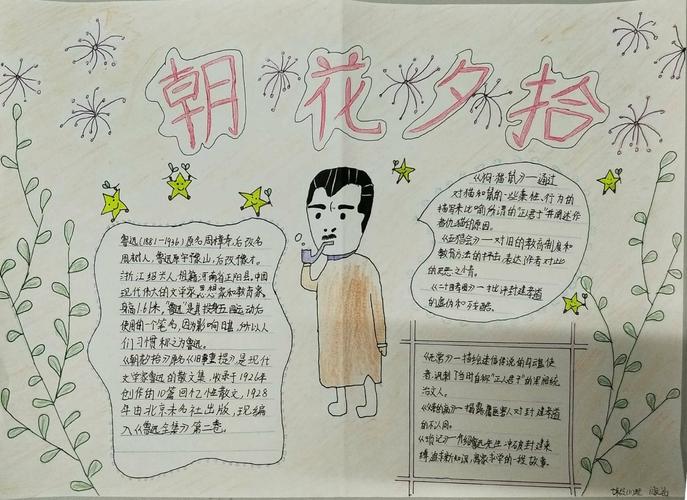 朝花夕拾
鲁迅(1881-1936)原名周樟寿,后改名
周树人,鲁迅原字豫山,后改豫才。
浙江绍兴人,祖籍河南省正阳县,中国
现代伟大的文学家思想家和教育家。
身高1.61米,"鲁迅"是其投身五四运动后
使用的一个笔名,因为影响日甚,所以人
们习惯称之为鲁迅。
《朝花夕拾》原名《旧事重提》是现代
文学家鲁迅的散文集,收录于1926年
创作的10篇回忆性散文,1928
年由北京未名社出版,现编
入《鲁迅全集》第二卷。
《狗·猫·鼠》—通过
对猫和鼠的一些秉性、行为的
描写来比喻所谓的"正君子"并阐述作
者仇猫的原因。
《五猖会》—对旧的教育制度和
教育方法的抨击,表达作者对此
的反感之情。
《二十四孝图》—批评封建孝道
的虚伪和残酷。
《无常》—描绘迷信传说的勾魂使
者,讽刺了当时自称"正人君子"的黑暗统
治文人。
《父亲的病》—揭露庸医害人对封建孝道
的不认同。
《琐记》—介绍鲁迅先生冲破封建束
缚追求新知识,离家求学的一段故事。